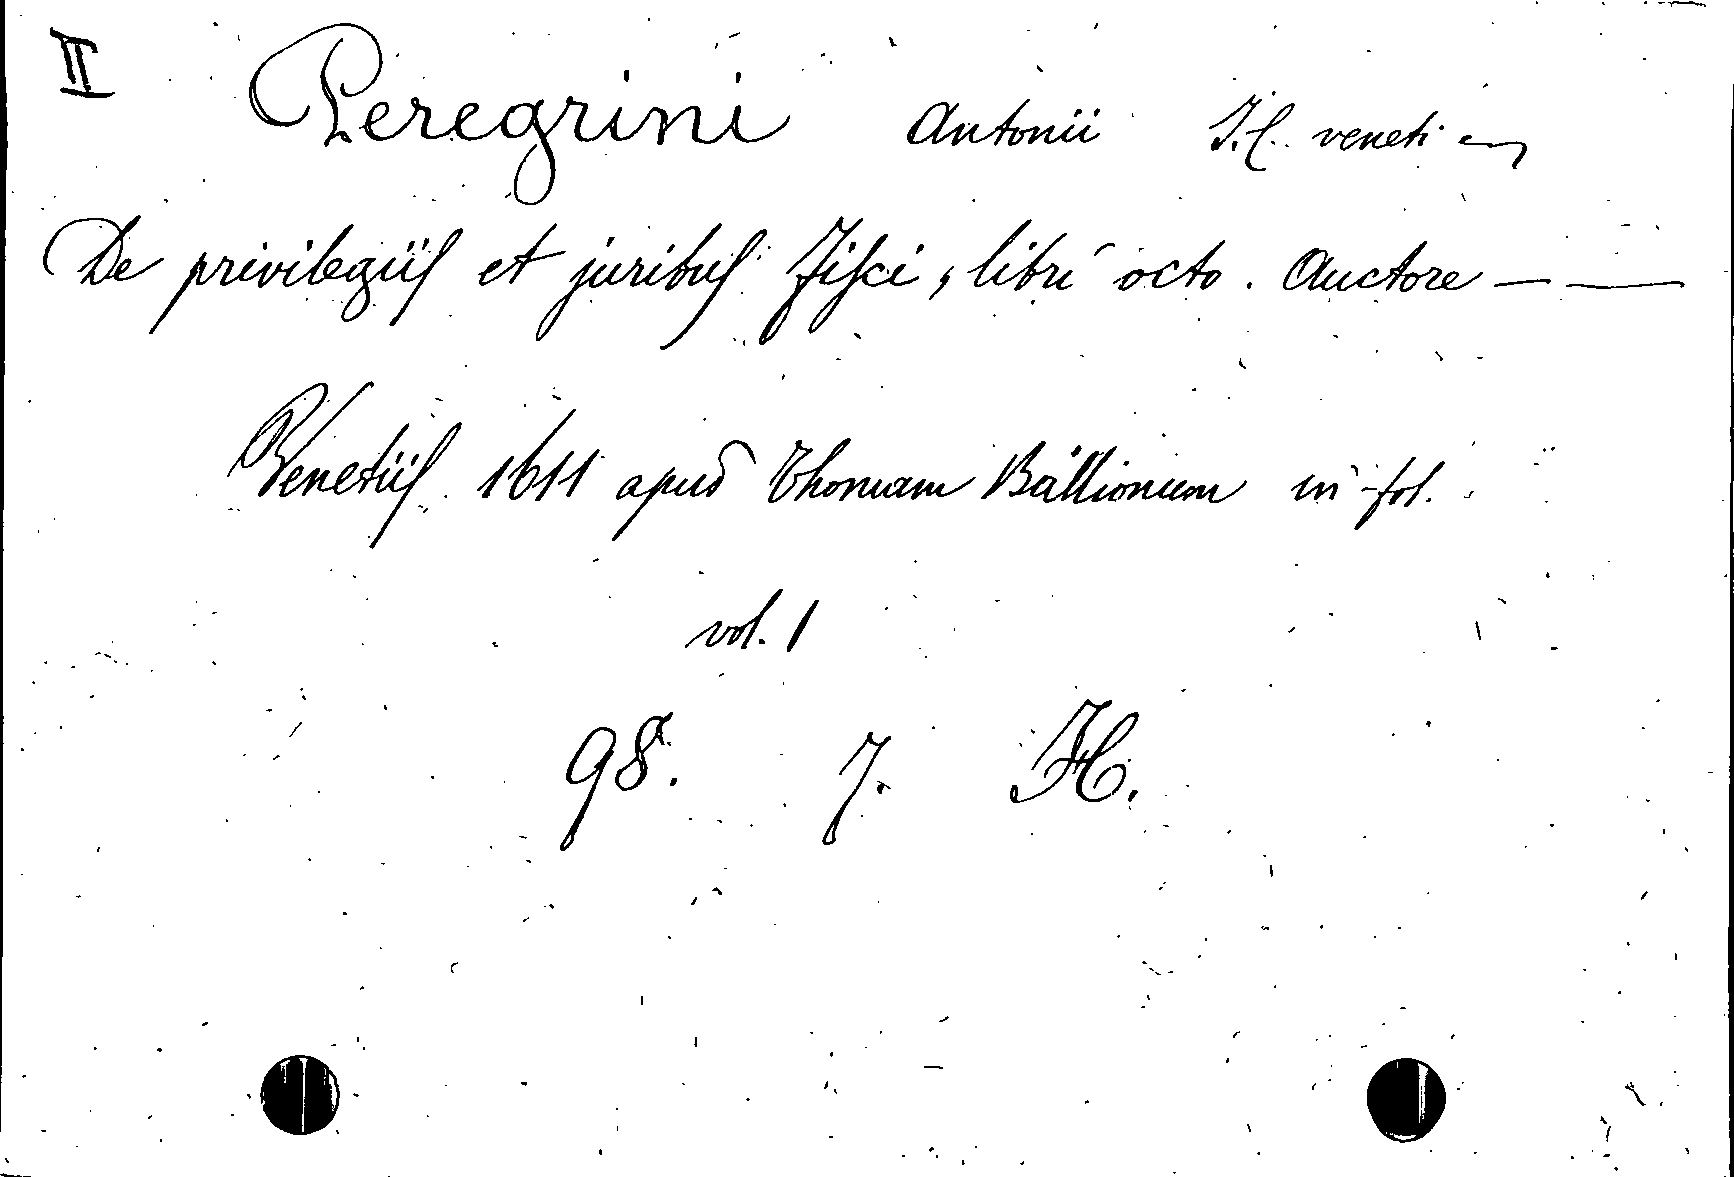 II Peregrini Antonii J. C. veneti
De privilegiis et juribus Fisci, libri octo. Auctore — —
Venetiis 1611 apud Thomam Ballionum in fol.
vol. 1
98. 7. H.